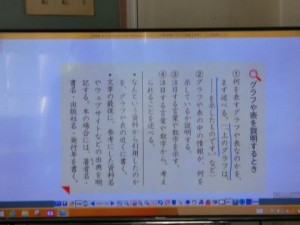 グラフや表を説明するとき
①何を表すグラフや表なのかを、
まず述べる。「上のグラフは、
――を示したものです。など」
②グラフや表の中の情報が、何を
示しているか説明する。
③注目する言葉や数字を示す。
④注目する言葉や数字から、考え
られることを述べる。
・なんという資料から引用したのか
を、グラフや表の近くに書く。
・文章の最後に、参考にした資料名
やウェブサイトなどの出典を明
記する。本の場合には、著者名・
書名・出版社名・発行年を書く。